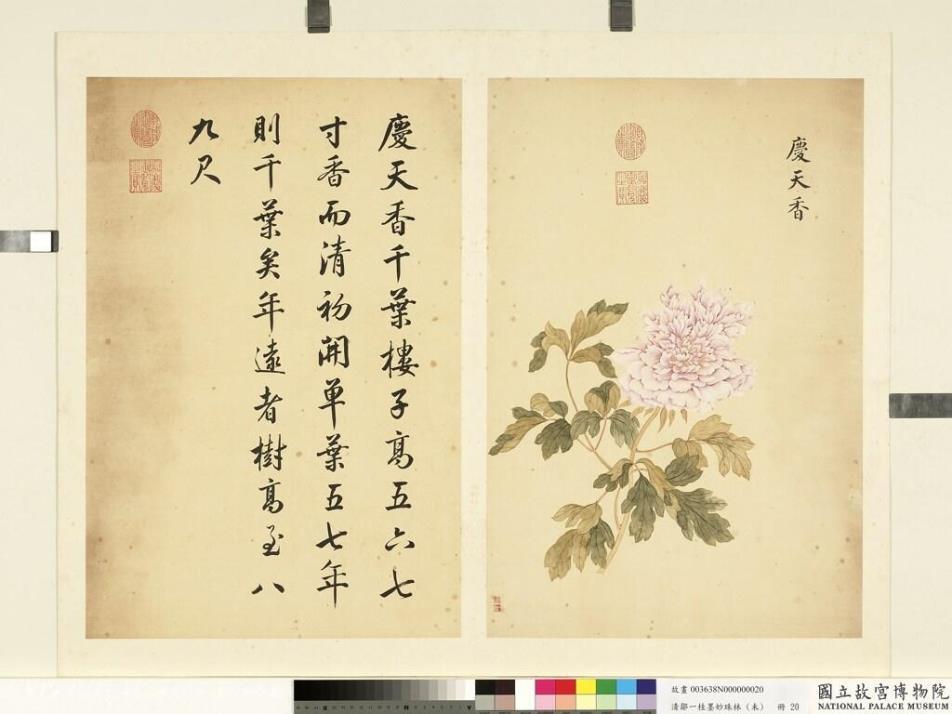 慶天香
慶天香千葉樓子高五六七
寸香而清初開单葉五七年
則千葉矣年遠者樹高至八
九尺
故畫 003638N000000020
清鄒一桂墨妙珠林（未） 冊 20
國立故宮博物院
NATIONAL PALACE MUSEUM